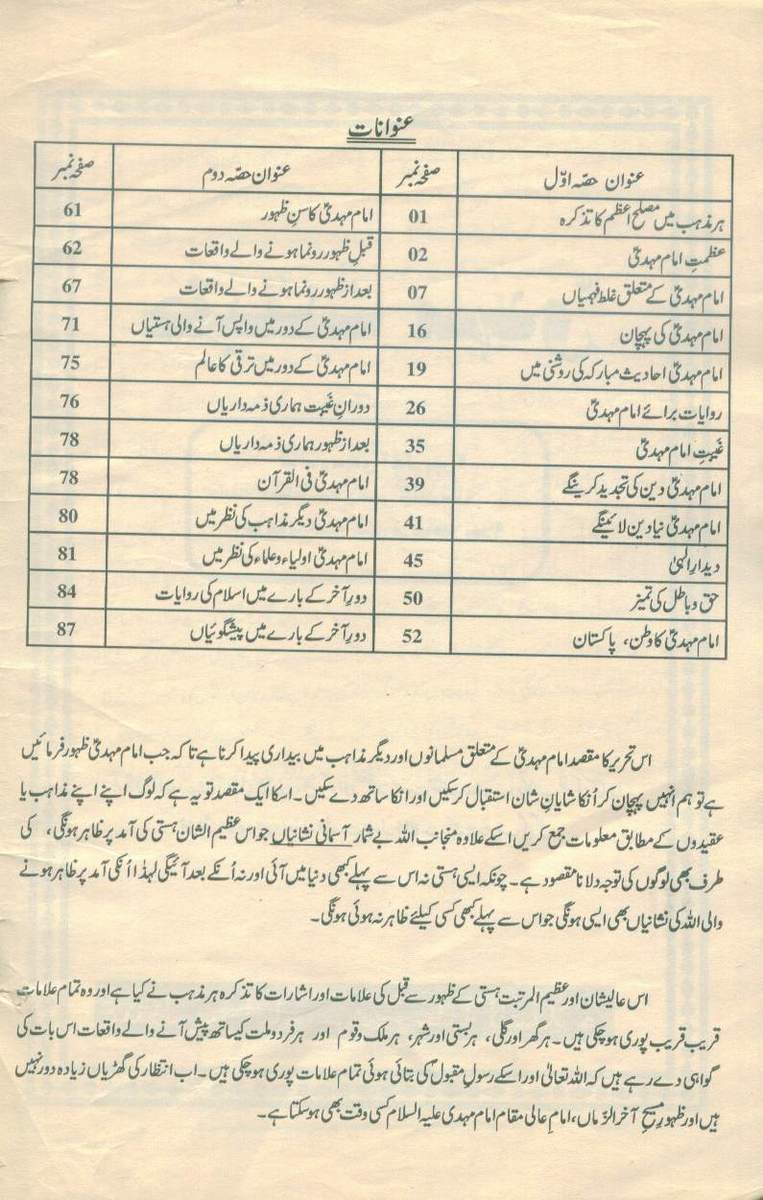 عنوانات
عنوان حصّہ اوّل صفحہ نمبر عنوان حصّہ دوم صفحہ نمبر
ہر مذہب میں مصلح اعظم کا تذکرہ 01 امام مہدیؑ کا سنِ ظہور 61
عظمتِ امام مہدیؑ 02 قبلِ ظہور رونما ہونے والے واقعات 62
امام مہدیؑ کے متعلق غلط فہمیاں 07 بعد از ظہور رونما ہونے والے واقعات 67
امام مہدیؑ کی پہچان 16 امام مہدیؑ کے دور میں واپس آنے والی ہستیاں 71
امام مہدیؑ احادیث مبارکہ کی روشنی میں 19 امام مہدیؑ کے دور میں ترقی کا عالم 75
روایات برائے امام مہدیؑ 26 دورانِ غَیبت ہماری ذمہ داریاں 76
غَیبتِ امام مہدیؑ 35 بعد از ظہور ہماری ذمہ داریاں 78
امام مہدیؑ دین کی تجدید کرینگے 39 امام مہدیؑ فی القرآن 78
امام مہدیؑ نیا دین لائینگے 41 امام مہدیؑ دیگر مذاہب کی نظر میں 80
دیدارِ الٰہی 45 امام مہدیؑ اولیاء و علماء کی نظر میں 81
حق و باطل کی تمیز 50 دورِ آخر کے بارے میں اسلام کی روایات 84
امام مہدیؑ کا وطن، پاکستان 52 دورِ آخر کے بارے میں پیشگوئیاں 87
اس تحریر کا مقصد امام مہدیؑ کے متعلق مسلمانوں اور دیگر مذاہب میں بیداری پیدا کرنا ہے تاکہ جب امام مہدیؑ ظہور فرمائیں
ہے تو ہم انہیں پہچان کر اُنکا شایانِ شان استقبال کر سکیں اور انکا ساتھ دے سکیں۔ اسکا ایک مقصد تو یہ ہے کہ لوگ اپنے اپنے مذاہب یا
عقیدوں کے مطابق معلومات جمع کریں اسکے علاوہ منجانب اللہ بے شمار آسمانی نشانیاں جو اس عظیم الشان ہستی کی آمد پر ظاہر ہونگی، کی
طرف بھی لوگوں کی توجہ دلانا مقصود ہے۔ چونکہ ایسی ہستی نہ اس سے پہلے کبھی دنیا میں آئی اور نہ اُنکے بعد آئیگی لہذا اُنکی آمد پر ظاہر ہونے
والی اللہ کی نشانیاں بھی ایسی ہونگی جو اس سے پہلے کبھی کسی کیلئے ظاہر نہ ہوئی ہونگی۔
اس عالیشان اور عظیم المرتبت ہستی کے ظہور سے قبل کی علامات اور اشارات کا تذکرہ ہر مذہب نے کیا ہے اور وہ تمام علامات
قریب قریب پوری ہو چکی ہیں۔ ہر گھر اور گلی، ہر بستی اور شہر، ہر ملک و قوم اور ہر فرد و ملت کیساتھ پیش آنے والے واقعات اس بات کی
گواہی دے رہے ہیں کہ اللہ تعالیٰ اور اسکے رسولِ مقبولؐ کی بتائی ہوئی تمام علامات پوری ہو چکی ہیں۔ اب انتظار کی گھڑیاں زیادہ دور نہیں
ہیں اور ظہورِ مسیح آخر الزّماں، امامِ عالی مقام امام مہدی علیہ السلام کسی وقت بھی ہو سکتا ہے۔